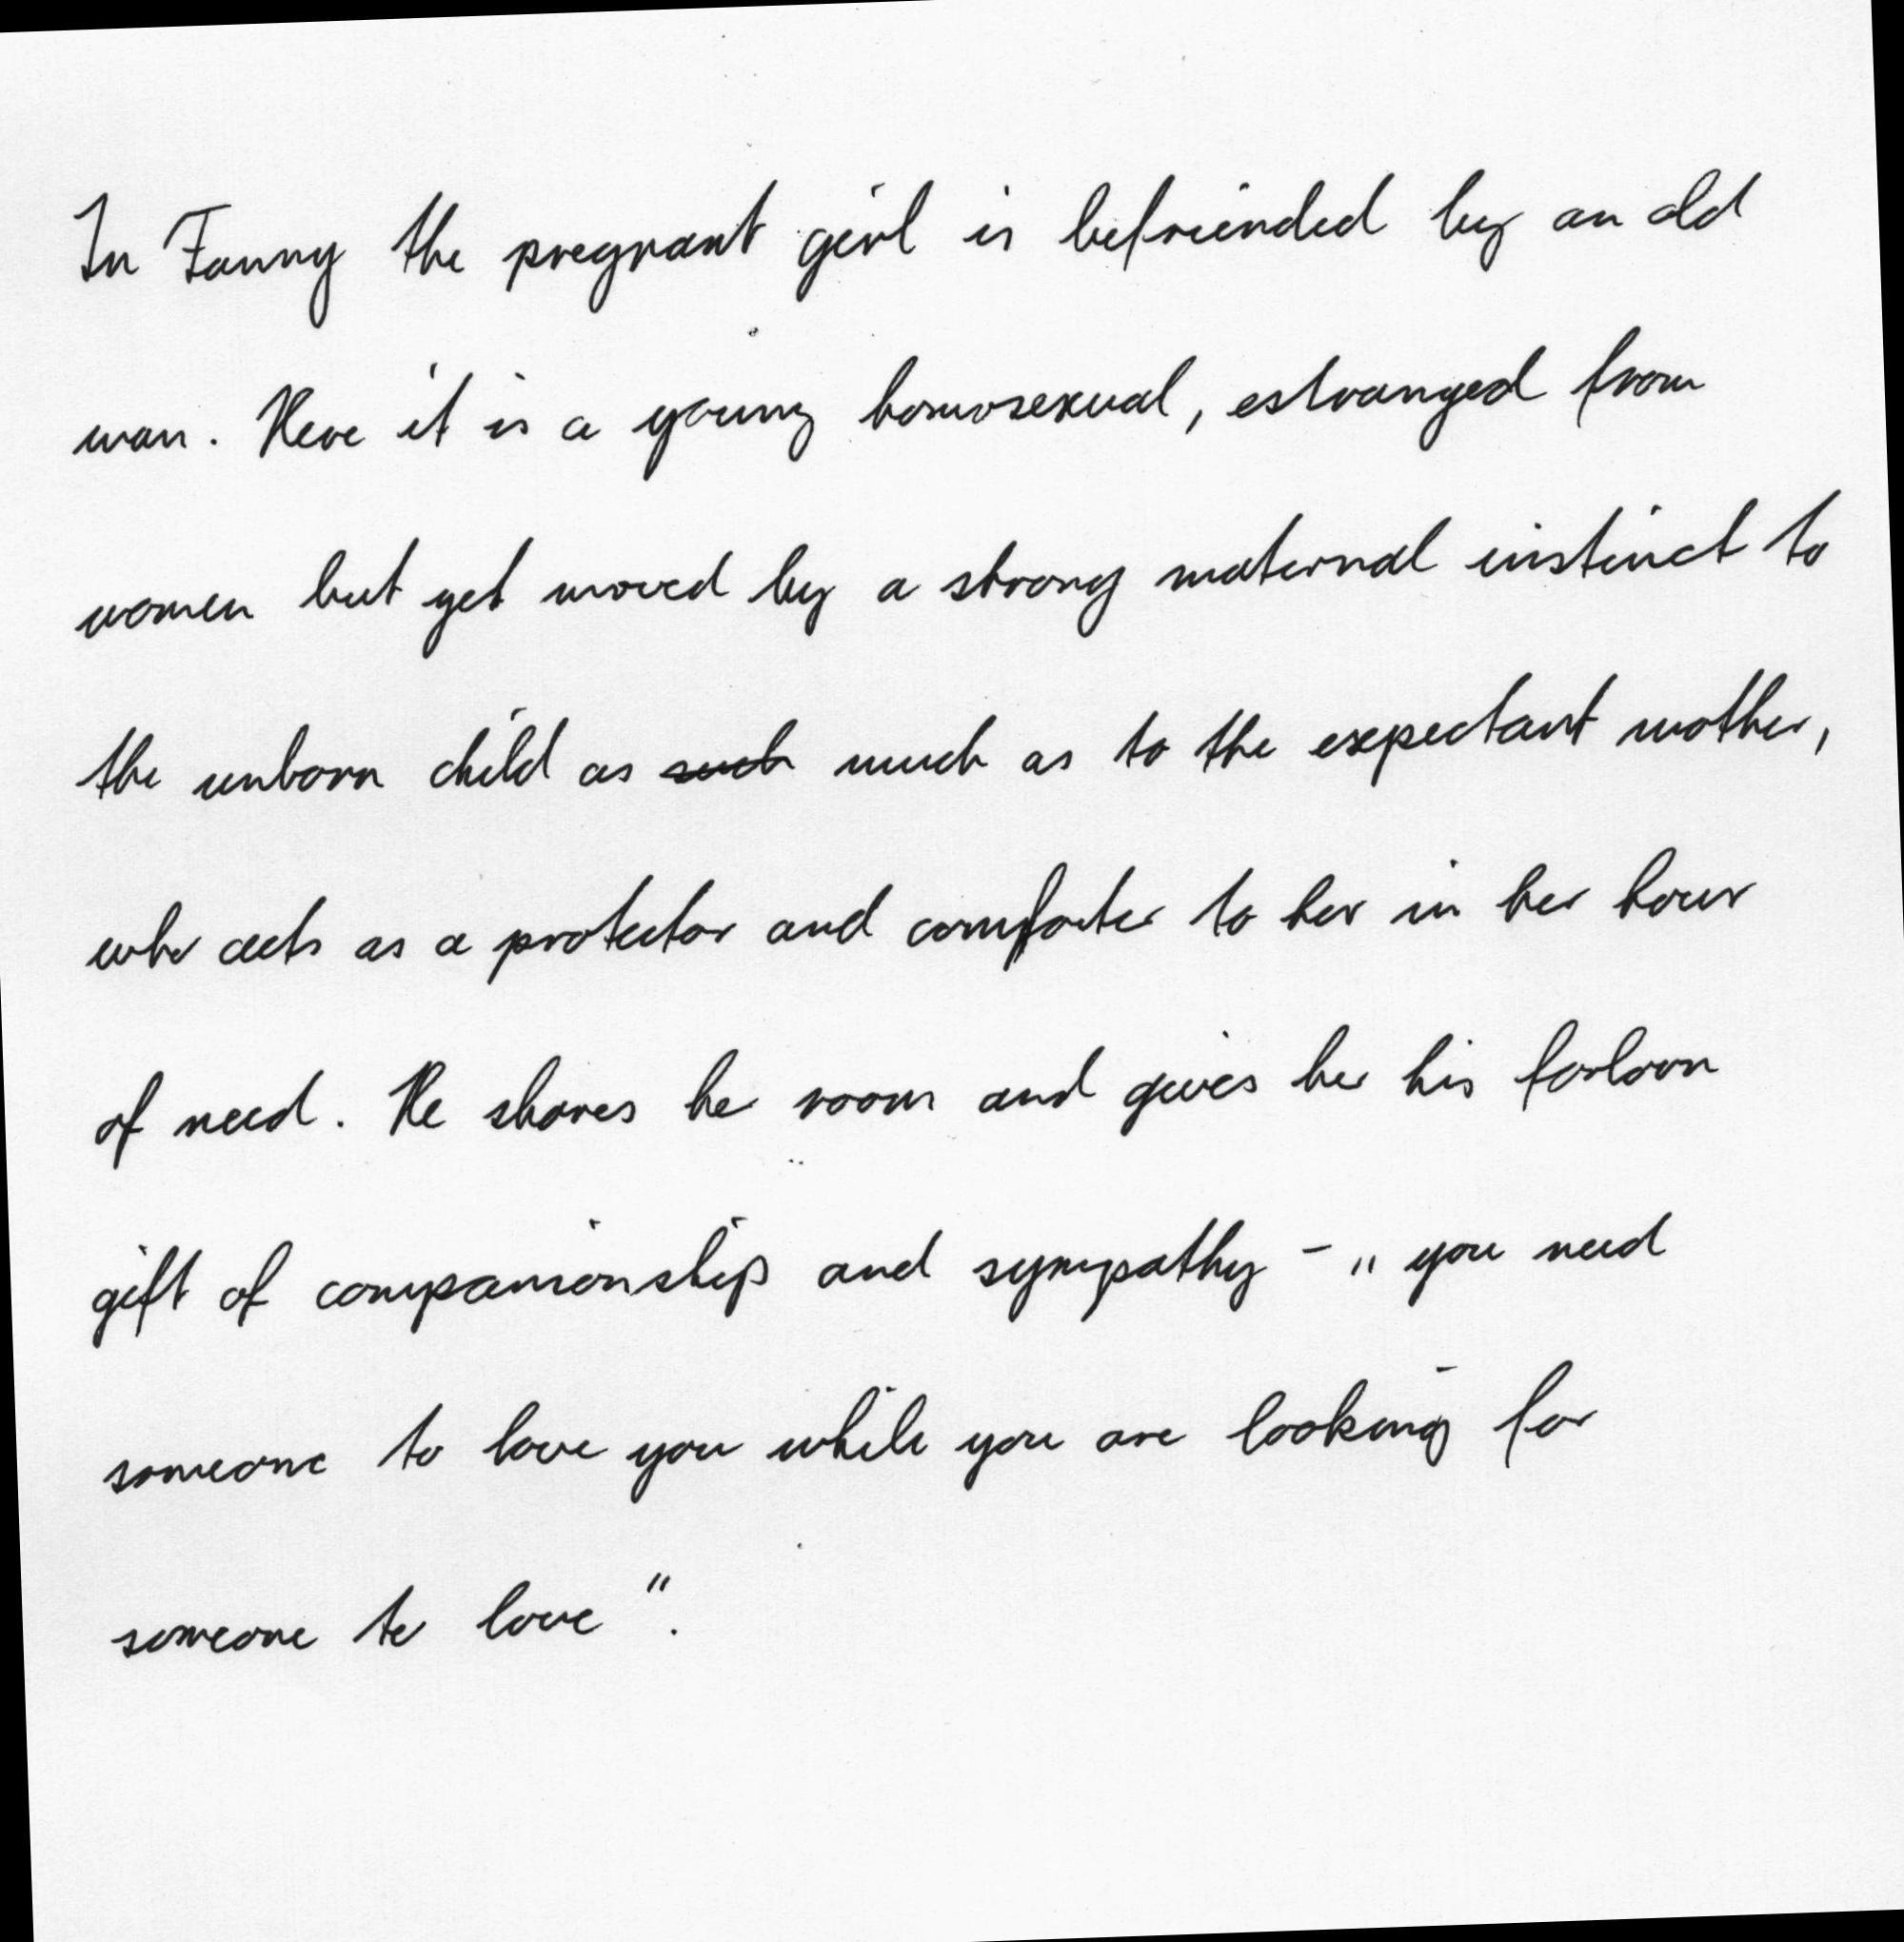 In Fanny the pregnant girl is befriended by an old
man. Here it is a young homosexual, estranged from
women but yet moved by a strong maternal instinct to
the unborn child as such much as to the expectant mother,
who acts as a protector and comforter to her in her hour
of need. He shares her room and gives her his forlorn
gift of companionship and sympathy - „you need
someone to love you while you are looking for
someone to love“.